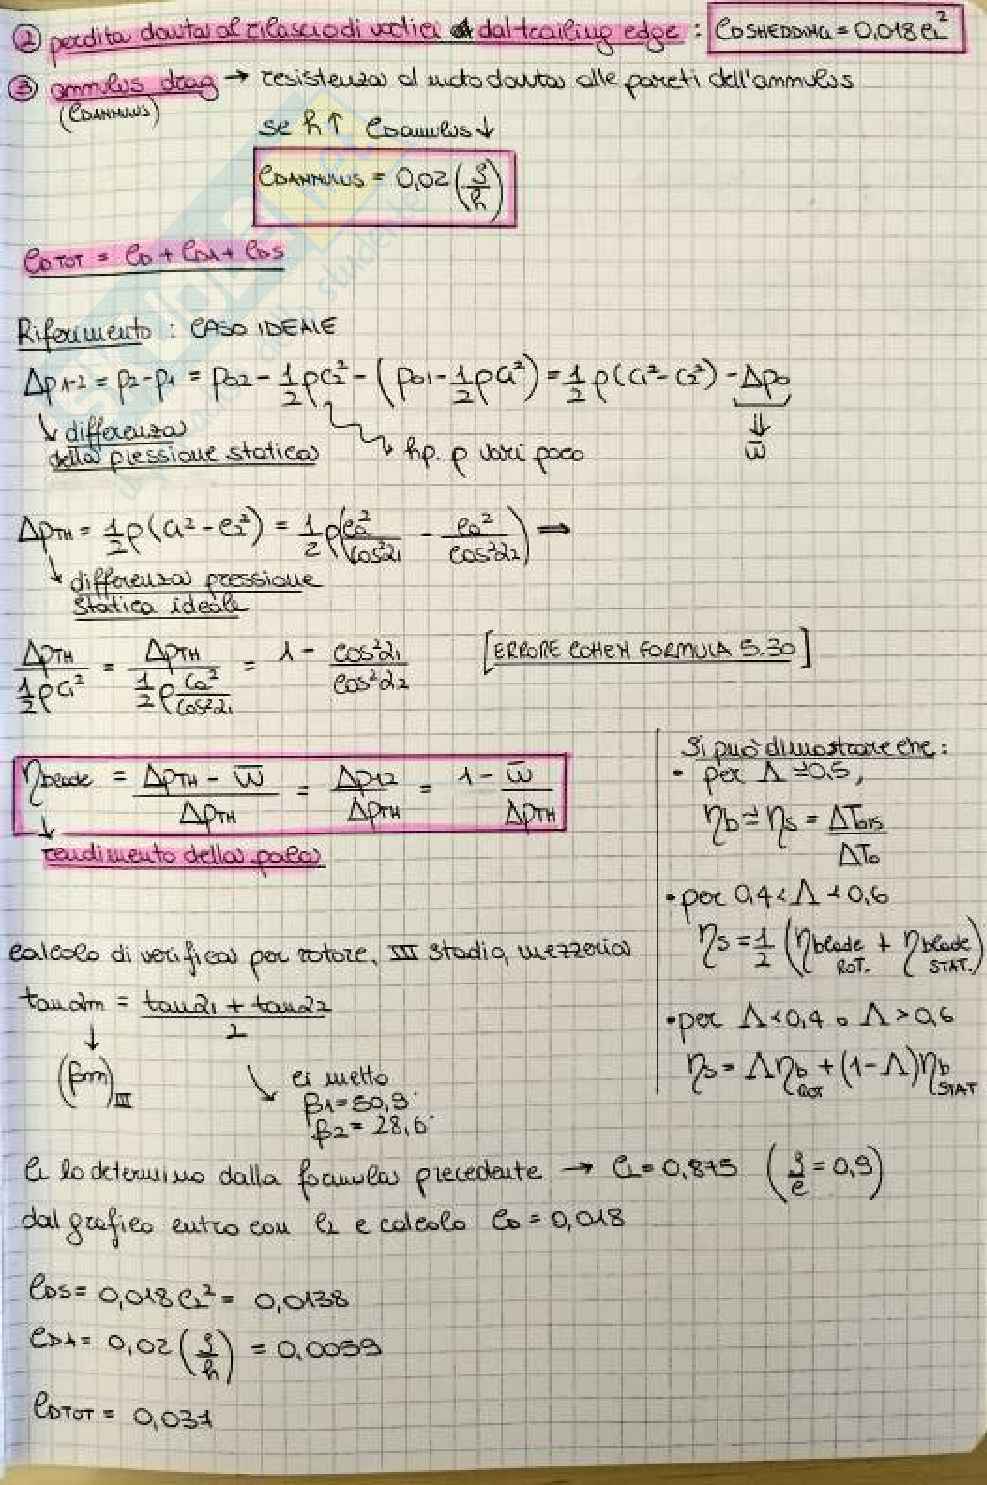 ② perdita dovuta al rilascio di vortici dal trailing edge : CDSHEDDING = 0,018 CL²
③ annulus drag → resistenza al moto dovuta alle pareti dell'annulus
(CDANNULUS)
se h↑ CDannulus↓
CDANNULUS = 0,02 (s/h)
CDTOT = CD + CDA + CDS
Riferimento : CASO IDEALE
Δp1-2 = p2 - p1 = p02 - 1/2 ρC2² - (p01 - 1/2 ρC1²) = 1/2 ρ(C1² - C2²) - Δp0
↘ differenza della pressione statica
↘ hp. ρ vari poco
⇓ w̄
ΔpTH = 1/2 ρ(C1² - C2²) = 1/2 ρ(Ca²/cos²α1 - Ca²/cos²α2) ⇒
↘ differenza pressione
statica ideale
ΔpTH / (1/2 ρC1²) = ΔpTH / (1/2 ρ Ca²/cos²α1) = 1 - cos²α1/cos²α2 [ERRORE COHEN FORMULA 5.30]
ηblade = (ΔpTH - w̄)/ΔpTH = Δp12/ΔpTH = 1 - w̄/ΔpTH
↓
rendimento della pala
Si può dimostrare che :
• per Λ ≃ 0,5,
ηb ≃ ηs = ΔT0is/ΔT0
• per 0,4 < Λ < 0,6
ηs = 1/2 (ηblade ROT. + ηblade STAT.)
• per Λ < 0,4 o Λ > 0,6
ηs = Ληb ROT + (1-Λ)ηb STAT
calcolo di verifica per rotore, III stadio, mezzeria
tanαm = (tanα1 + tanα2)/2
↓
(βm)III
↘ ci metto
β1 = 50,9°
β2 = 28,6°
CL lo determino dalla formula precedente → CL = 0,875 (s/c = 0,9)
dal grafico entro con CL e calcolo CD = 0,018
CDS = 0,018 CL² = 0,0138
CDA = 0,02 (s/h) = 0,0059
CDTOT = 0,031